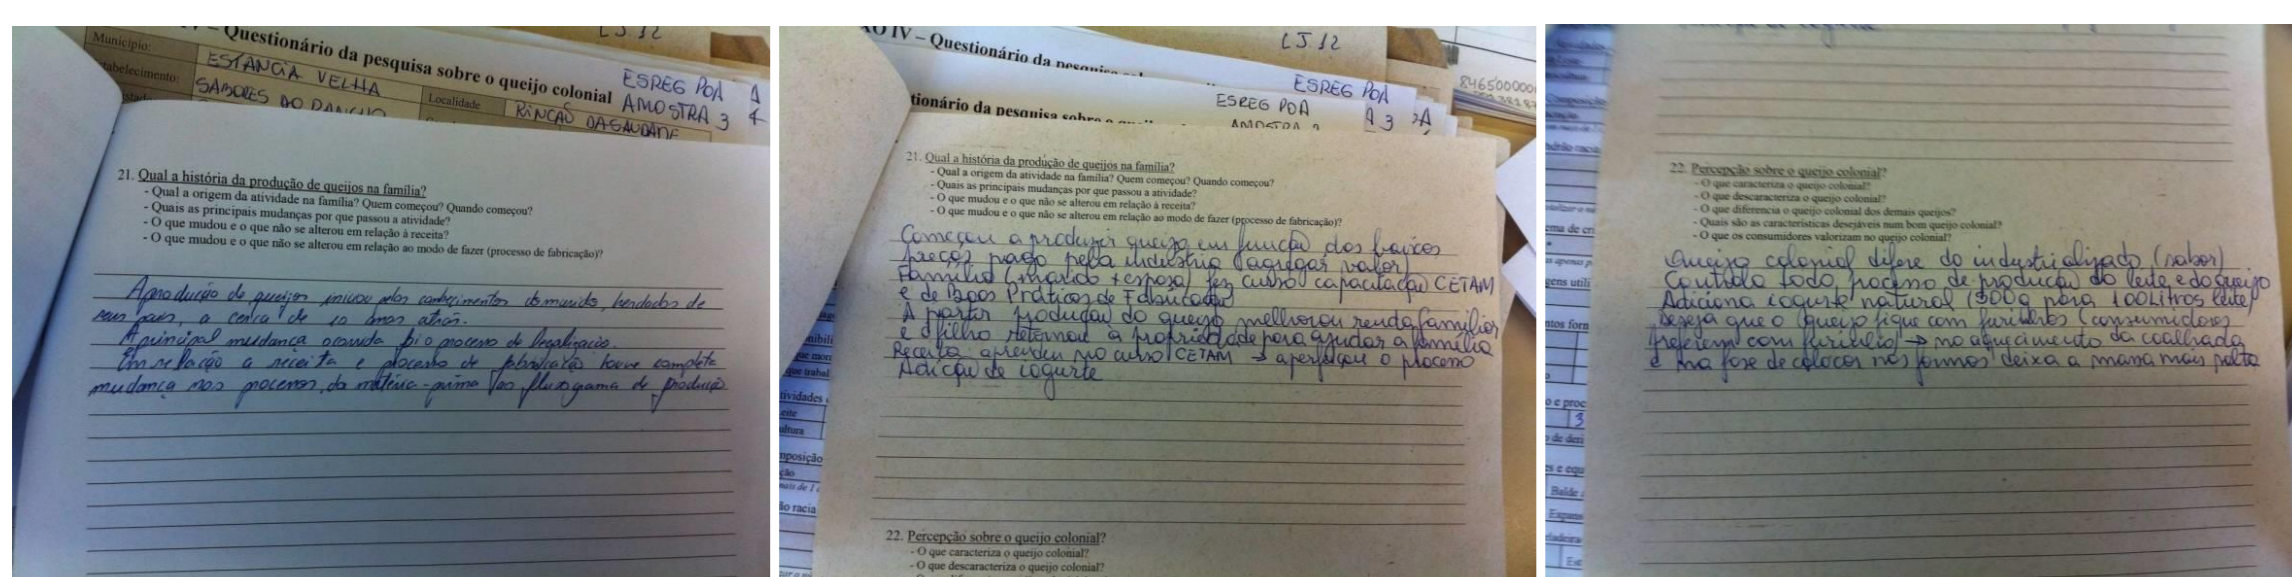 LJ 12
– Questionário da pesquisa sobre o queijo colonial
ESREG POA
AMOSTRA 3
Município:
ESTÂNCIA VELHA
SABORES DO RANCHO
Localidade
RINCÃO DA SAUDADE
21. Qual a história da produção de queijos na família?
- Qual a origem da atividade na família? Quem começou? Quando começou?
- Quais as principais mudanças por que passou a atividade?
- O que mudou e o que não se alterou em relação à receita?
- O que mudou e o que não se alterou em relação ao modo de fazer (processo de fabricação)?
A produção de queijos iniciou pelos conhecimentos do marido, herdados de
seus pais, a cerca de 10 anos atrás.
A principal mudança ocorrida foi o processo de legalização.
Em relação a receita e processo de fabricação houve completa
mudança nos processos, da matéria-prima ao fluxograma de produção
LJ 12
IV – Questionário da pesquisa sobre o queijo colonial
ESREG POA
ESREG POA
21. Qual a história da produção de queijos na família?
- Qual a origem da atividade na família? Quem começou? Quando começou?
- Quais as principais mudanças por que passou a atividade?
- O que mudou e o que não se alterou em relação à receita?
- O que mudou e o que não se alterou em relação ao modo de fazer (processo de fabricação)?
Começou a produzir queijo em função dos baixos
preços pago pela indústria (agregar valor)
Família (marido + esposa) fez curso capacitação CETAM
e de Boas Práticas de Fabricação
A partir produção do queijo melhorou renda familiar
e o filho retornou à propriedade para ajudar a família
Receita aprendeu no curso CETAM → aperfeiçou o processo
Adição de iogurte
22. Percepção sobre o queijo colonial?
- O que caracteriza o queijo colonial?
- O que descaracteriza o queijo colonial?
22. Percepção sobre o queijo colonial?
- O que caracteriza o queijo colonial?
- O que descaracteriza o queijo colonial?
- O que diferencia o queijo colonial dos demais queijos?
- Quais são as características desejáveis num bom queijo colonial?
- O que os consumidores valorizam no queijo colonial?
Queijo colonial difere do industrializado (sabor)
Controla todo processo de produção do leite e do queijo
Adiciona iogurte natural (500g para 100 Litros leite)
Deseja que o queijo fique com furinhos (consumidores
preferem com furinho) → no aquecimento da coalhada
e na fase de colocar nas formas deixa a massa mais solta